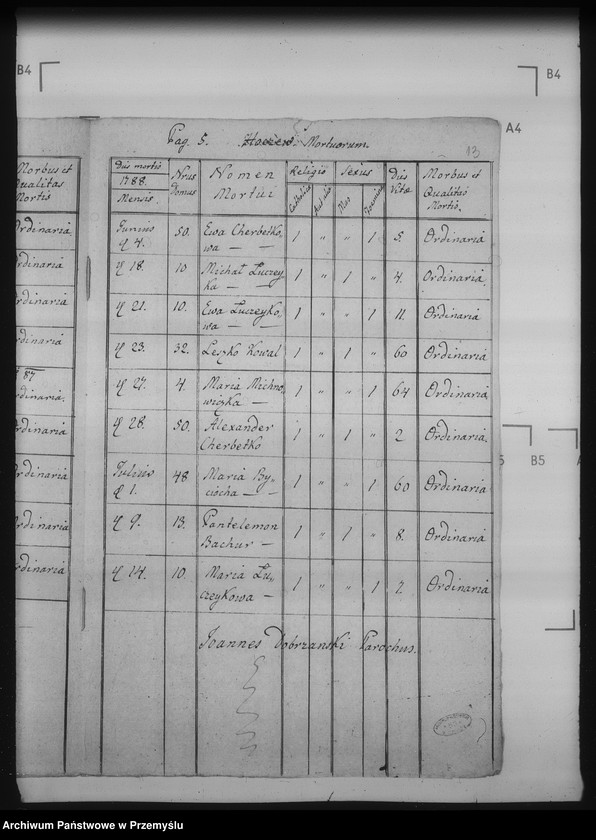 B4
B4
A4
B5
Pag. 5. Hoczew Mortuorum.
13
Morbus et
Qualitas
Mortis
Ordinaria
Ordinaria
Ordinaria
Ordinaria
87
Ordinaria.
Ordinaria
Ordinaria
Ordinaria
Ordinaria
Dies mortis 1788. Mensis. | Nrus Domus | Nomen Mortui | Religio Catholica | Sexus Mas Foemina | Dies Vitae | Morbus et Qualitas Mortis.
Junius
4. 50. Ewa Cherbetko- 1 " " 1 5. Ordinaria
wa — —
18. 10 Michał Łuczey 1 " 1 " 4. Ordinaria.
ka — —
21. 10. Ewa Łuczeyko, 1 " " 1 11. Ordinaria
wa — —
23. 32. Leszko Kowal 1 " 1 " 60 Ordinaria
27. 4. Maria Michno, 1 " " 1 64 Ordinaria
wiczka —
28. 50. Alexander 1 " 1 " 2 Ordinaria.
Cherbetko
Julius 48 Maria By- 1 " " 1 60 Ordinaria
1. ciocha — —
9. 13. Pantelemon 1 " 1 " 8. Ordinaria
Bachur —
14. 10. Maria Łu- 1 " " 1 2 Ordinaria
czeykowa —
Joannes Dobrzanski Parochus.
Archiwum Państwowe w Przemyślu